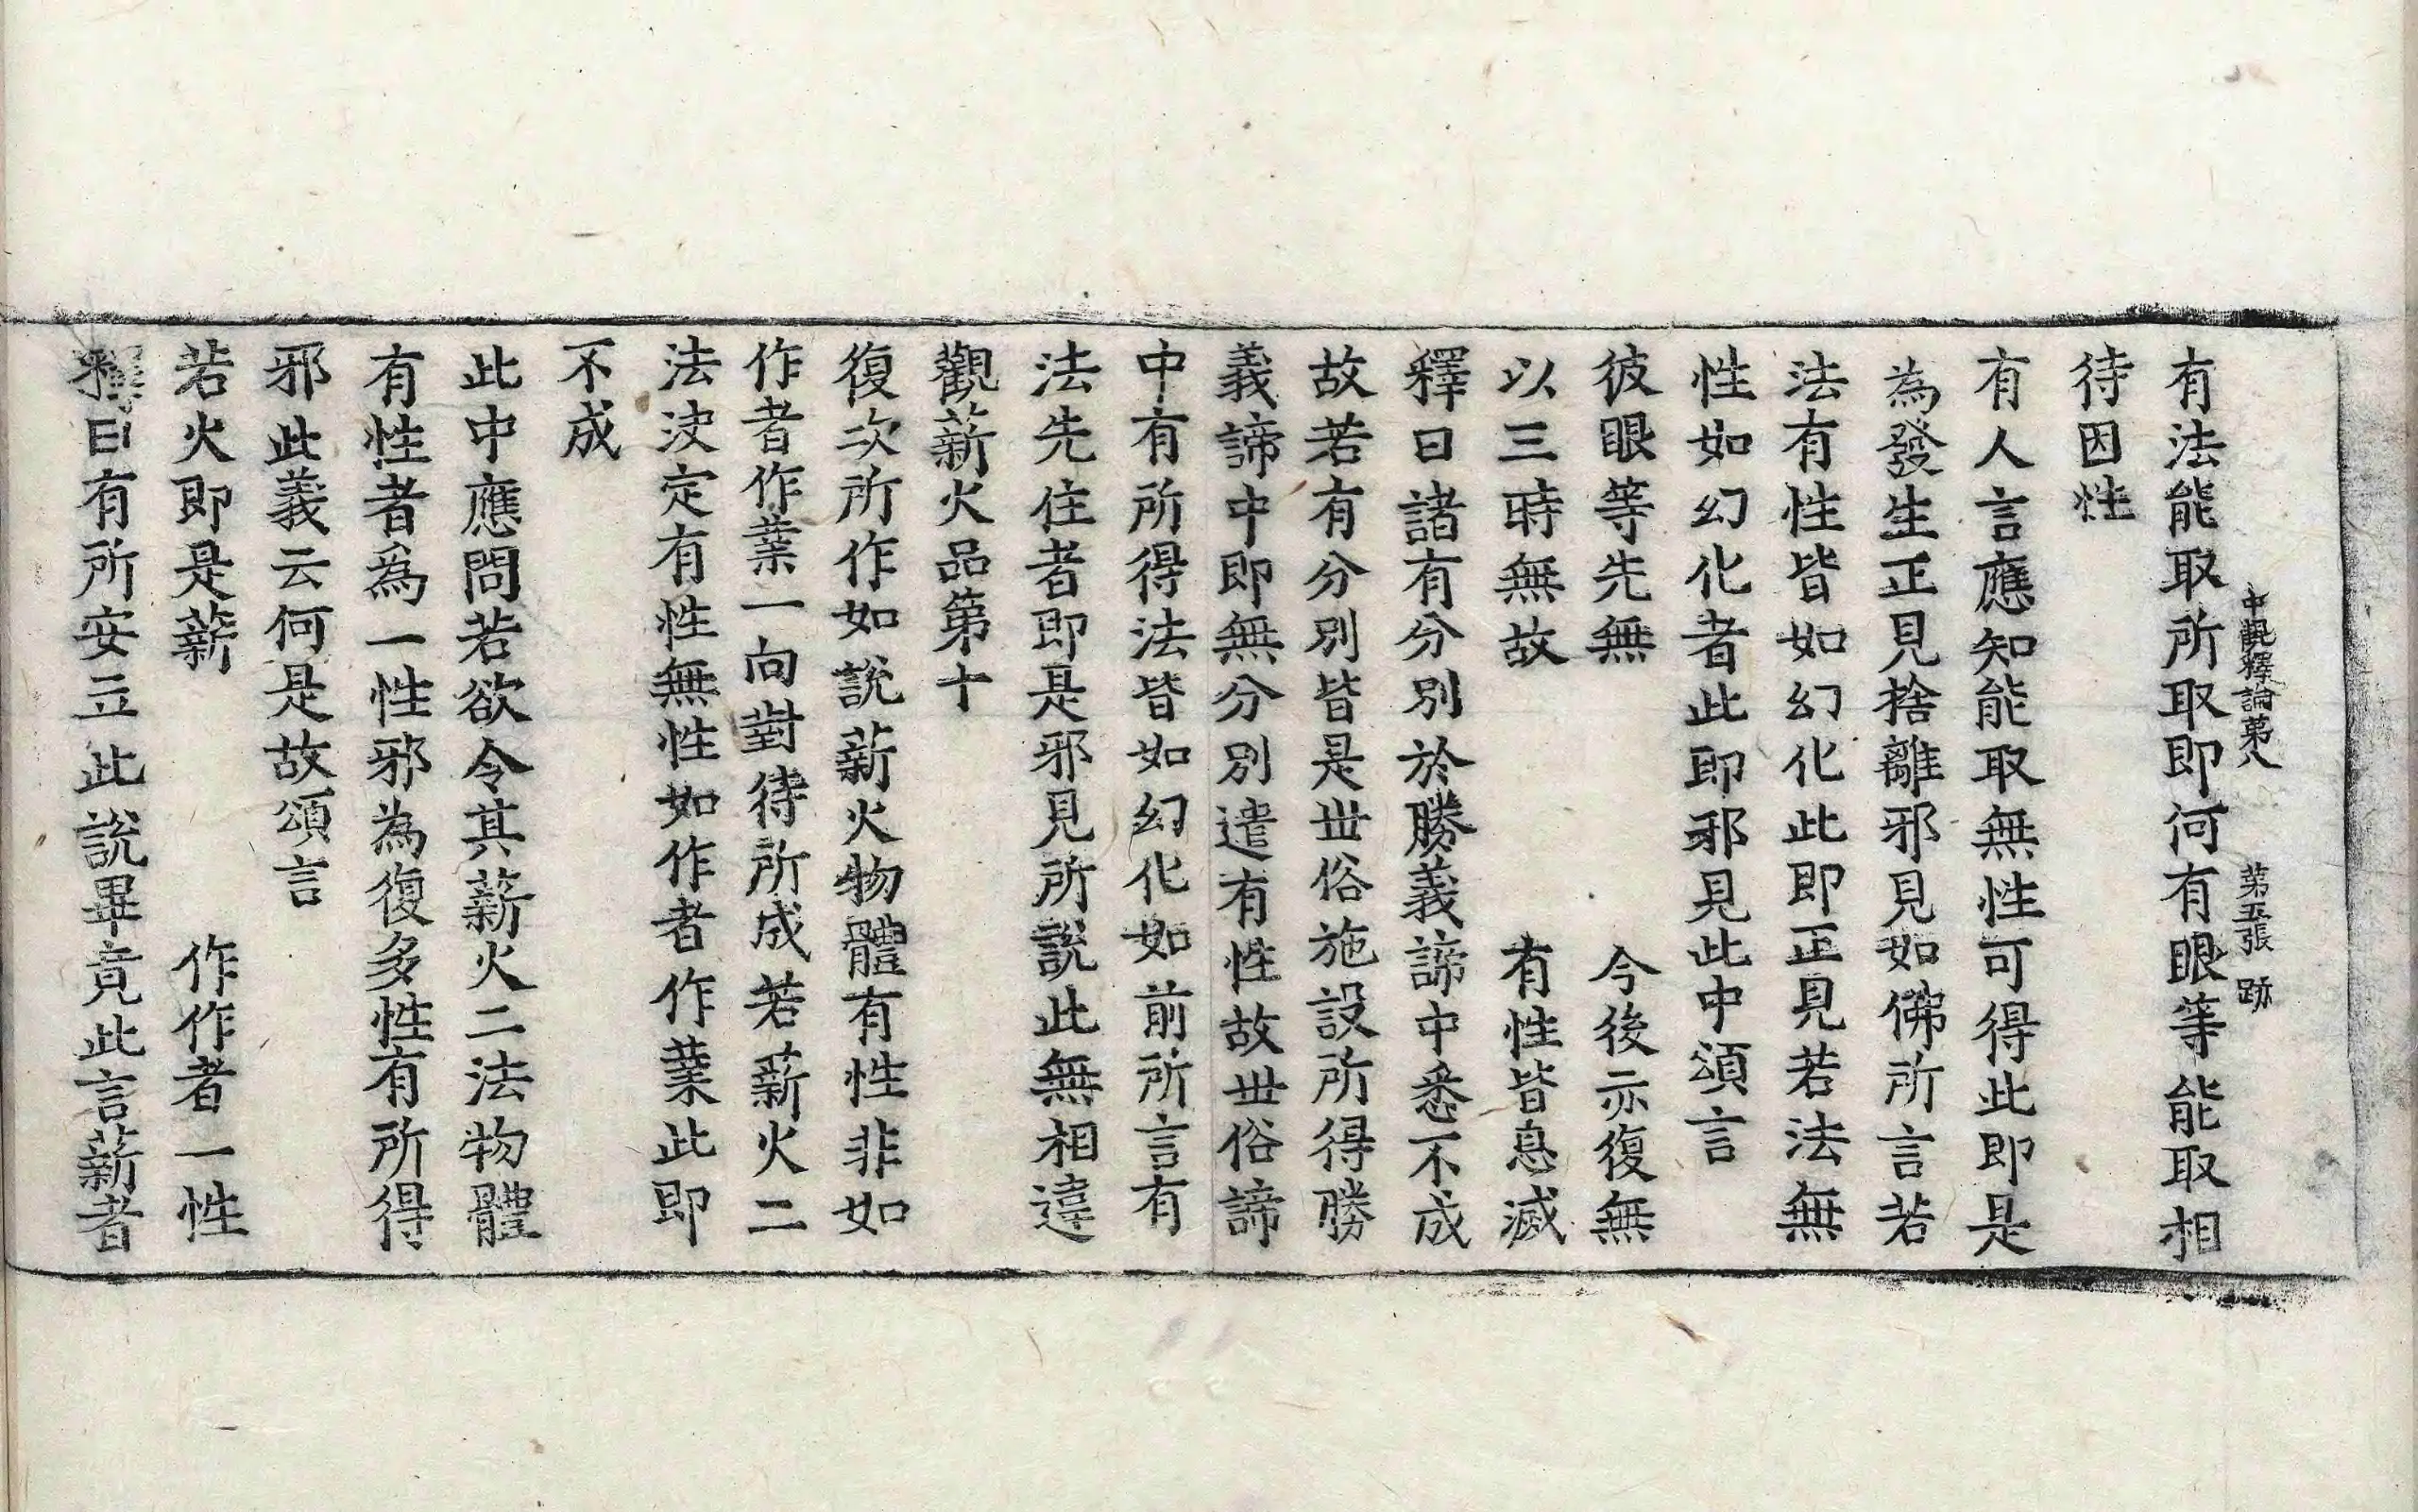 中觀釋論第八　第五張　跡
有法能取所取即何有眼等能取相
待因性
有人言應知能取無性可得此即是
為發生正見捨離邪見如佛所言若
法有性皆如幻化此即正見若法無
性如幻化者此即邪見此中頌言
彼眼等先無　今後亦復無
以三時無故　有性皆息滅
釋曰諸有分別於勝義諦中悉不成
故若有分別皆是世俗施設所得勝
義諦中即無分別遣有性故世俗諦
中有所得法皆如幻化如前所言有
法先住者即是邪見所說此無相違
觀薪火品第十
復次所作如說薪火物體有性非如
作者作業一向對待所成若薪火二
法決定有性無性如作者作業此即
不成
此中應問若欲令其薪火二法物體
有性者為一性邪為復多性有所得
邪此義云何是故頌言
若火即是薪　作作者一性
釋曰有所安立此說畢竟此言薪者